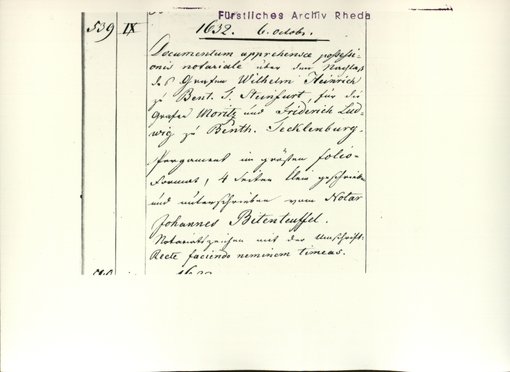 Fürstliches Archiv Rheda
539 IX 1632. 6. octobr.
Documentum apprehensae possessi-
onis notariale über den Nachlaß
des Grafen Wilhelm Heinrich
zu Bent. J. Steinfurt, für die
Grafen Moritz und Friderich Lud-
wig zu Benth. Tecklenburg.
Pergament im größten folio-
Format, 4 Seiten geschrieben
und unterschrieben vom Notar
Johannes Bitenteuffel.
Notariatszeichen mit der Umschrift:
Recte faciendo neminem timeas.